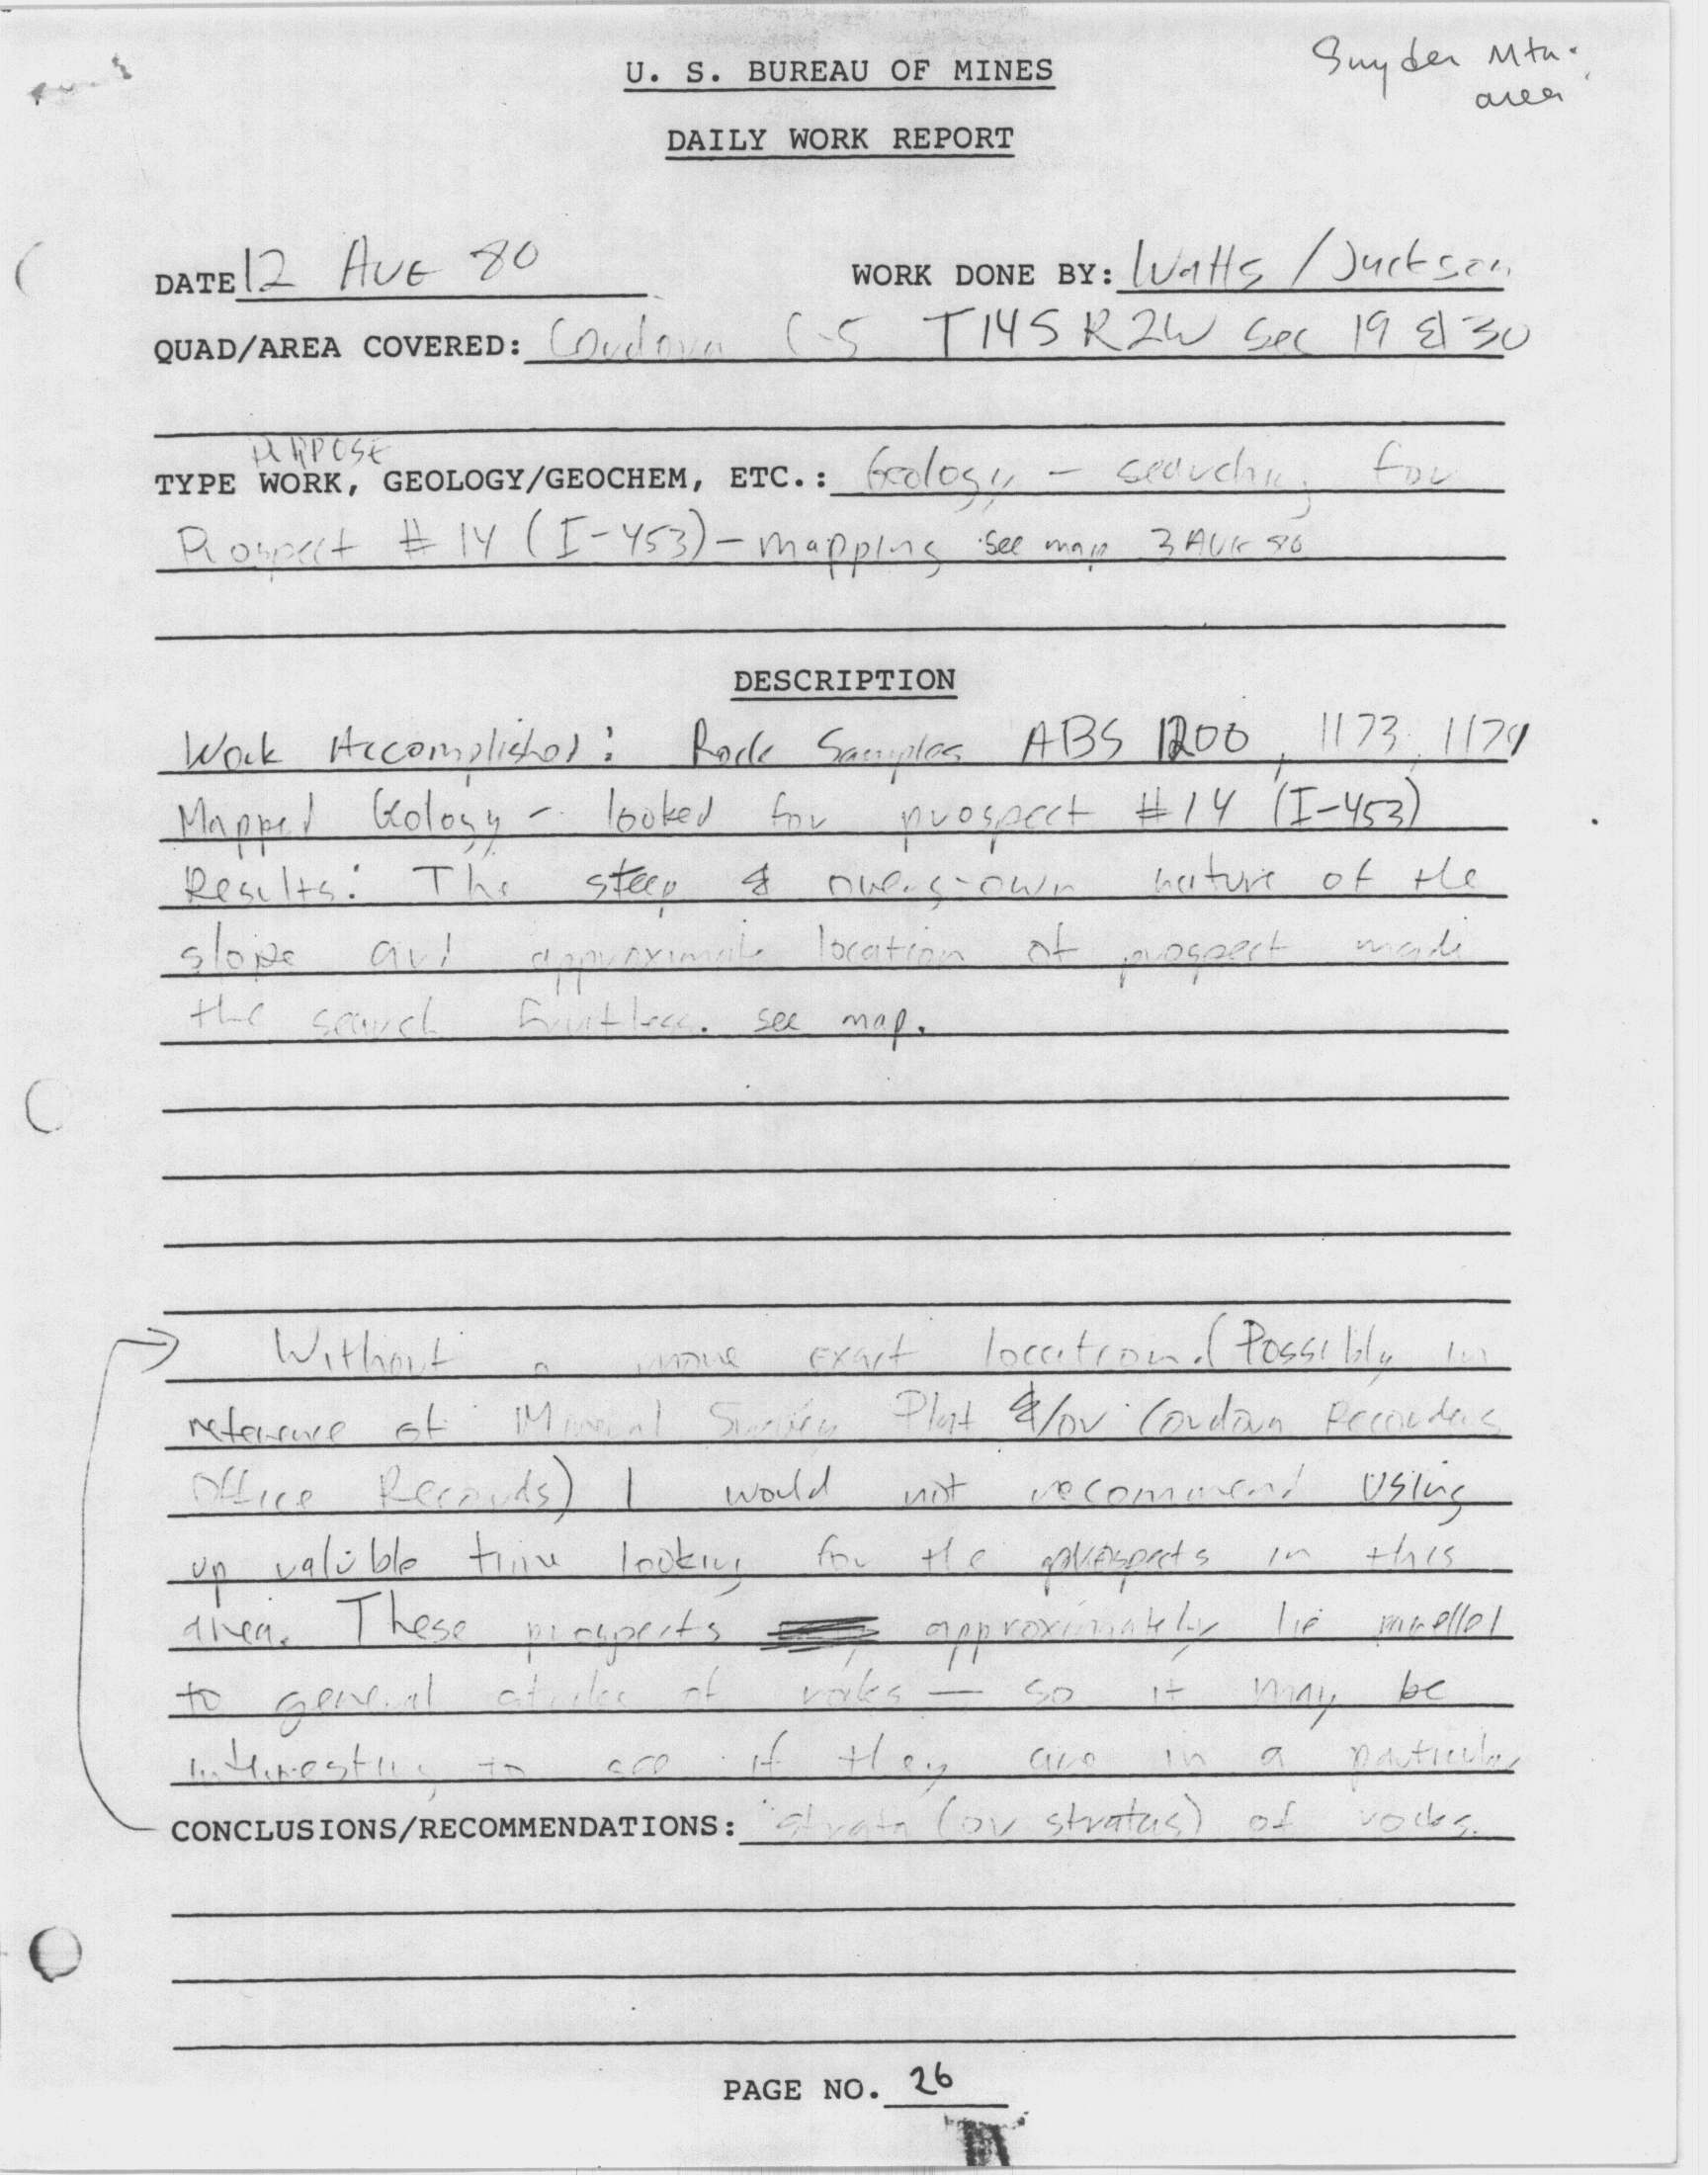 Snyder Mtn.
area
U. S. BUREAU OF MINES
DAILY WORK REPORT
DATE 12 AUG 80 WORK DONE BY: Watts / Jackson
QUAD/AREA COVERED: Cordova C-5 T14S R2W Sec 19 & 30
PURPOSE
TYPE WORK, GEOLOGY/GEOCHEM, ETC.: Geology - searching for
Prospect # 14 (I-453) - mapping see map 3 AUG 80
DESCRIPTION
Work Accomplished: Rock Samples ABS 1200, 1173, 1174
Mapped Geology - looked for prospect #14 (I-453)
Results: The steep & overgrown nature of the
slope and approximate location of prospect made
the search fruitless. see map.
Without a more exact location. (Possibly in
reference of Mineral Survey Plat &/or Cordova Recorders
Office Records) I would not recommend using
up valuble time looking for the prospects in this
area. These prospects approximately lie parellel
to general strike of rocks — so it may be
interesting to see if they are in a particular
CONCLUSIONS/RECOMMENDATIONS: strata (or stratas) of rocks.
PAGE NO. 26